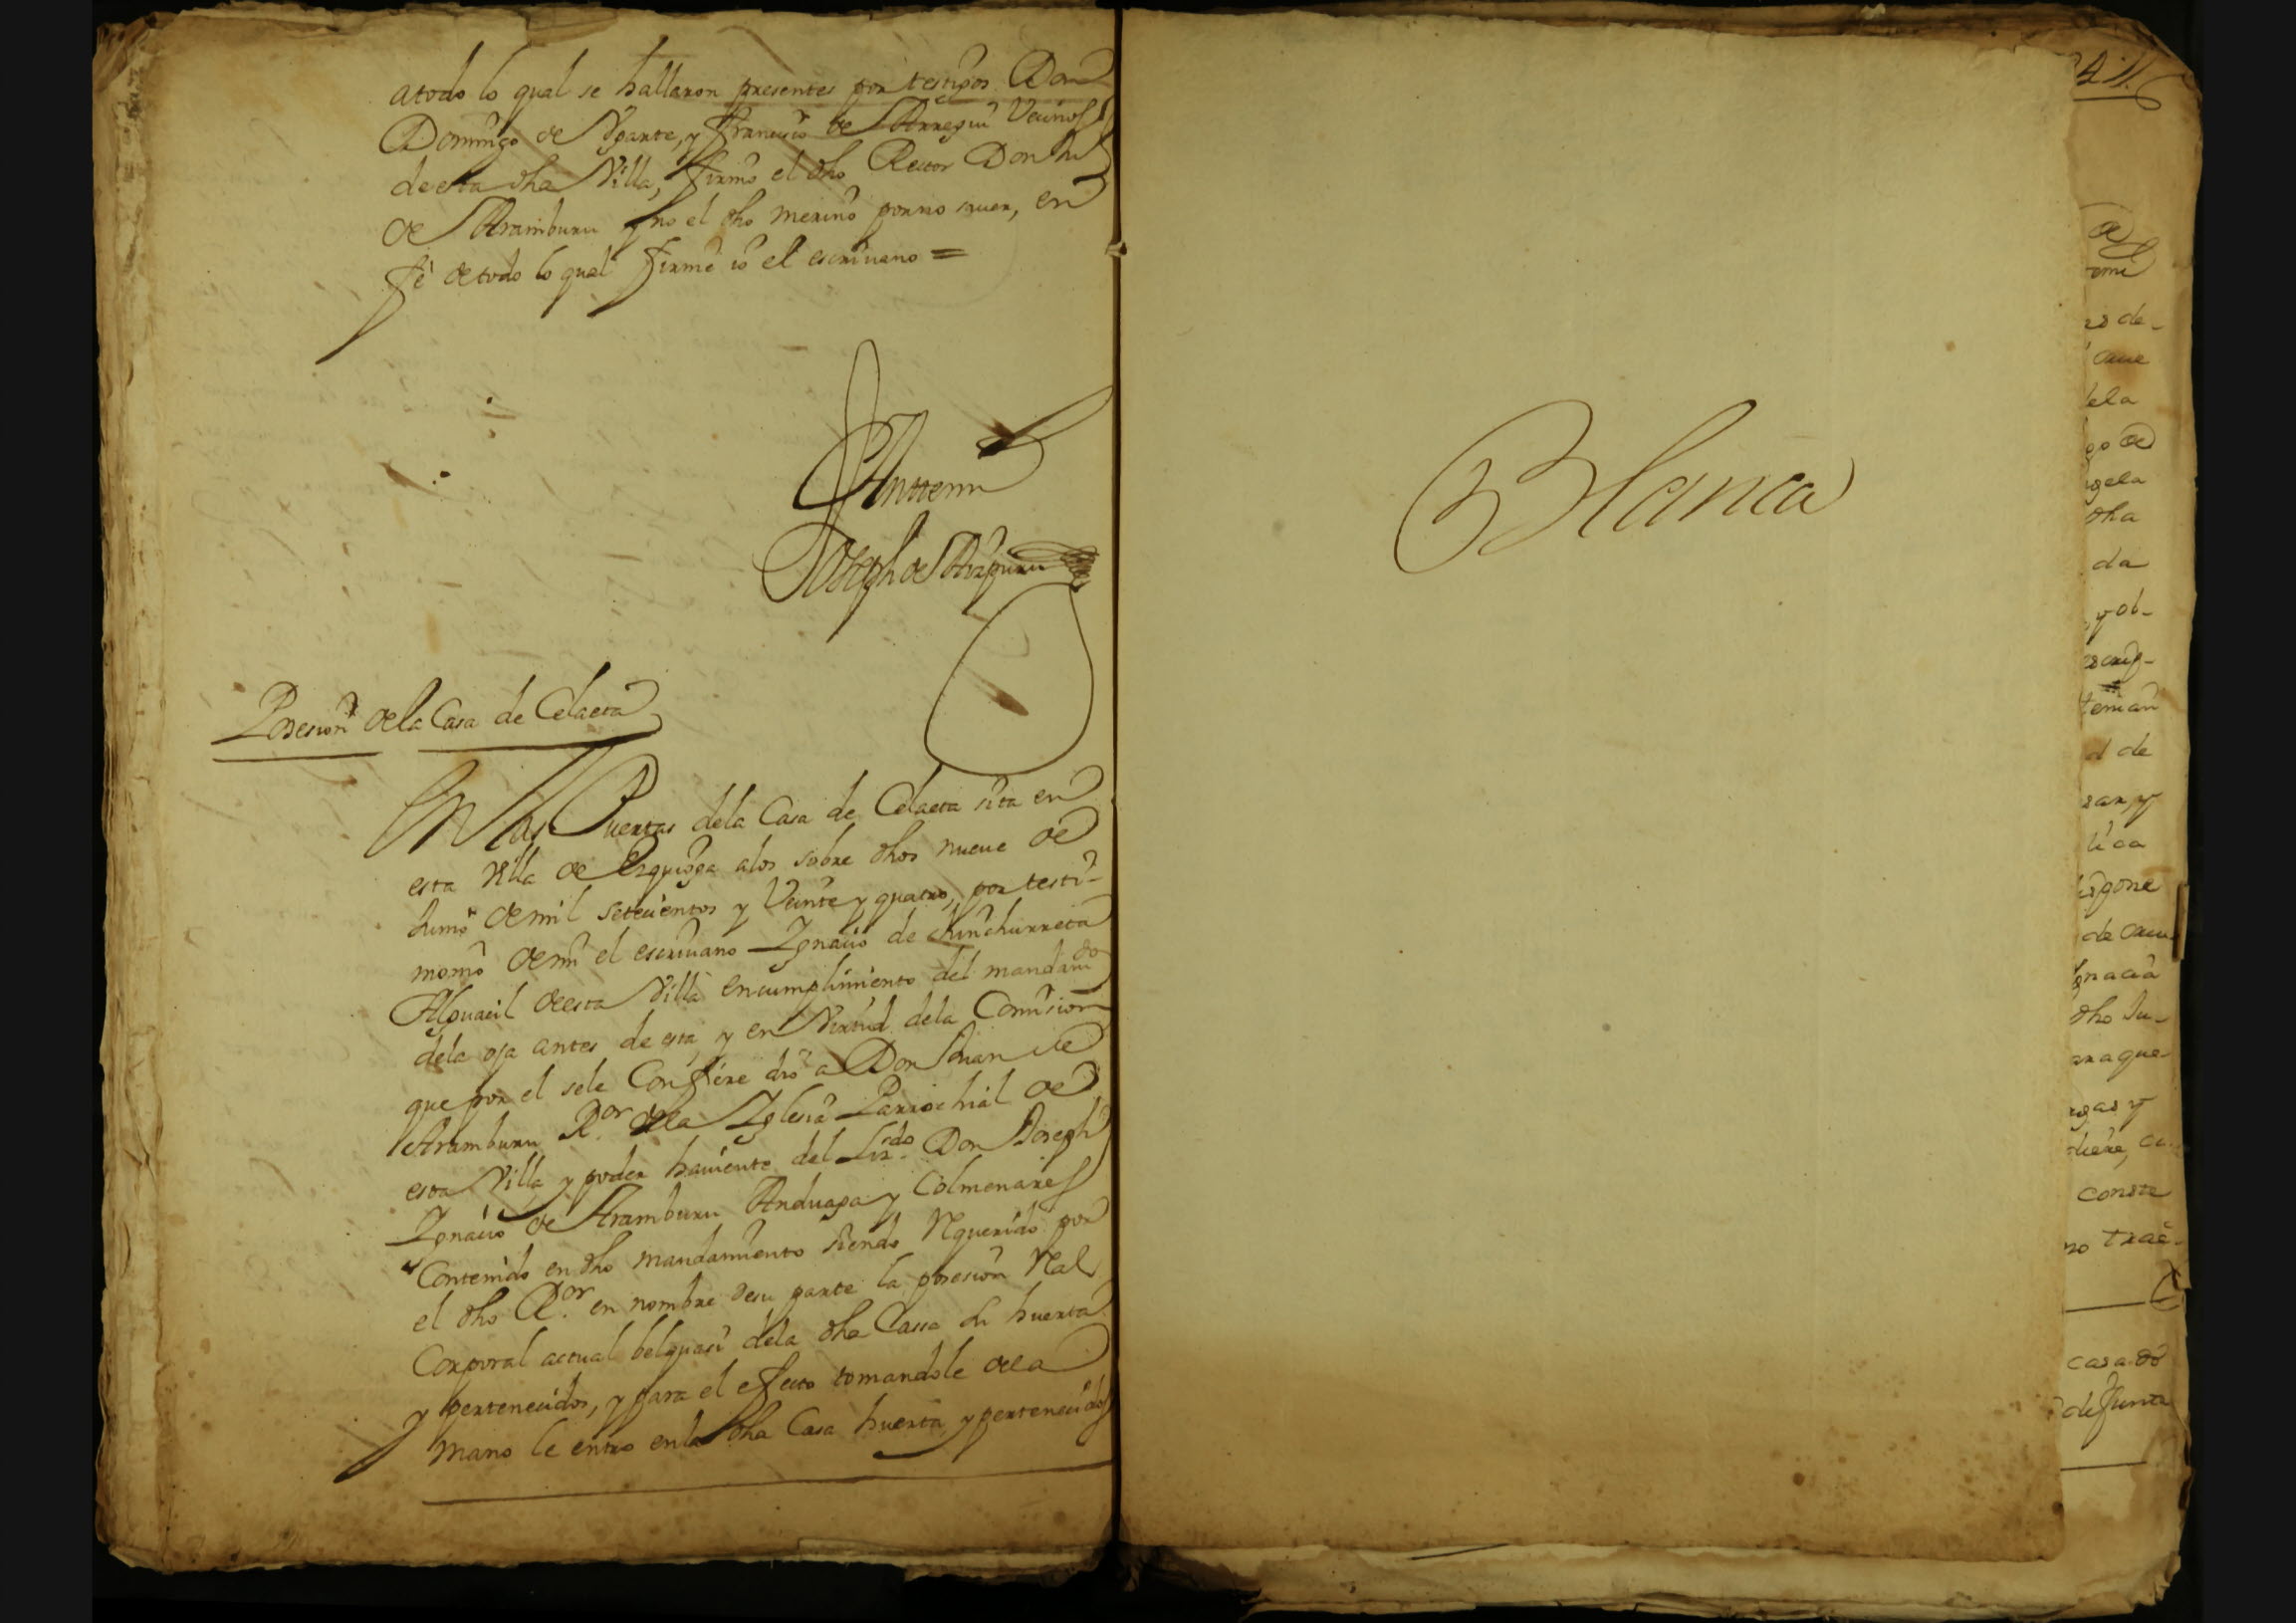 atodo lo qual se hallaron presentes por testigos Don
Domingo de Ygarte, y Francisco de Arregui Vecinos
de esta dha Villa, firmo el dho Rector Don Ju
de Aramburu y no el dho merino por no saver, en
fe de todo lo qual firme io el escriuano =
Anttemi
Joseph de Aizpuru
Posesion de la Casa de Celaeta
En las Puertas dela Casa de Celaeta sita en
esta Villa de Ezquioga alos sobre dhos nueue de
Junio de mil setecientos y Veinte y quatro, por testi-
monio de mi el escriuano Ygnacio de chinchurreta
Alguacil de esta Villa en cumplimiento del mandamto
dela oja antes de esta, y en Virtud dela Comision
que por el sele Confiere dio a Don Juan de
Aramburu Ror. dela Yglesia Parrochial de
esta Villa y poder haviente del Lizdo. Don Joseph
Ygnacio de Aramburu Anduaga y Colmenares
Contenido en dho mandamiento siendo Requerido por
el dho Ror. en nombre desu parte la posesion Real
Corporal actual belquasi dela dha Cassa su huerta
y pertenecidos, y para el efecto tomandole dela
mano le entro en la dha Casa huerta y pertenecidos
Blanca
de
rs de-
ela
go de
dha
da
y ob-
tenian
d de
de
gnacia
dho Ju-
ara que
conste
no trae-
casa do
defunta